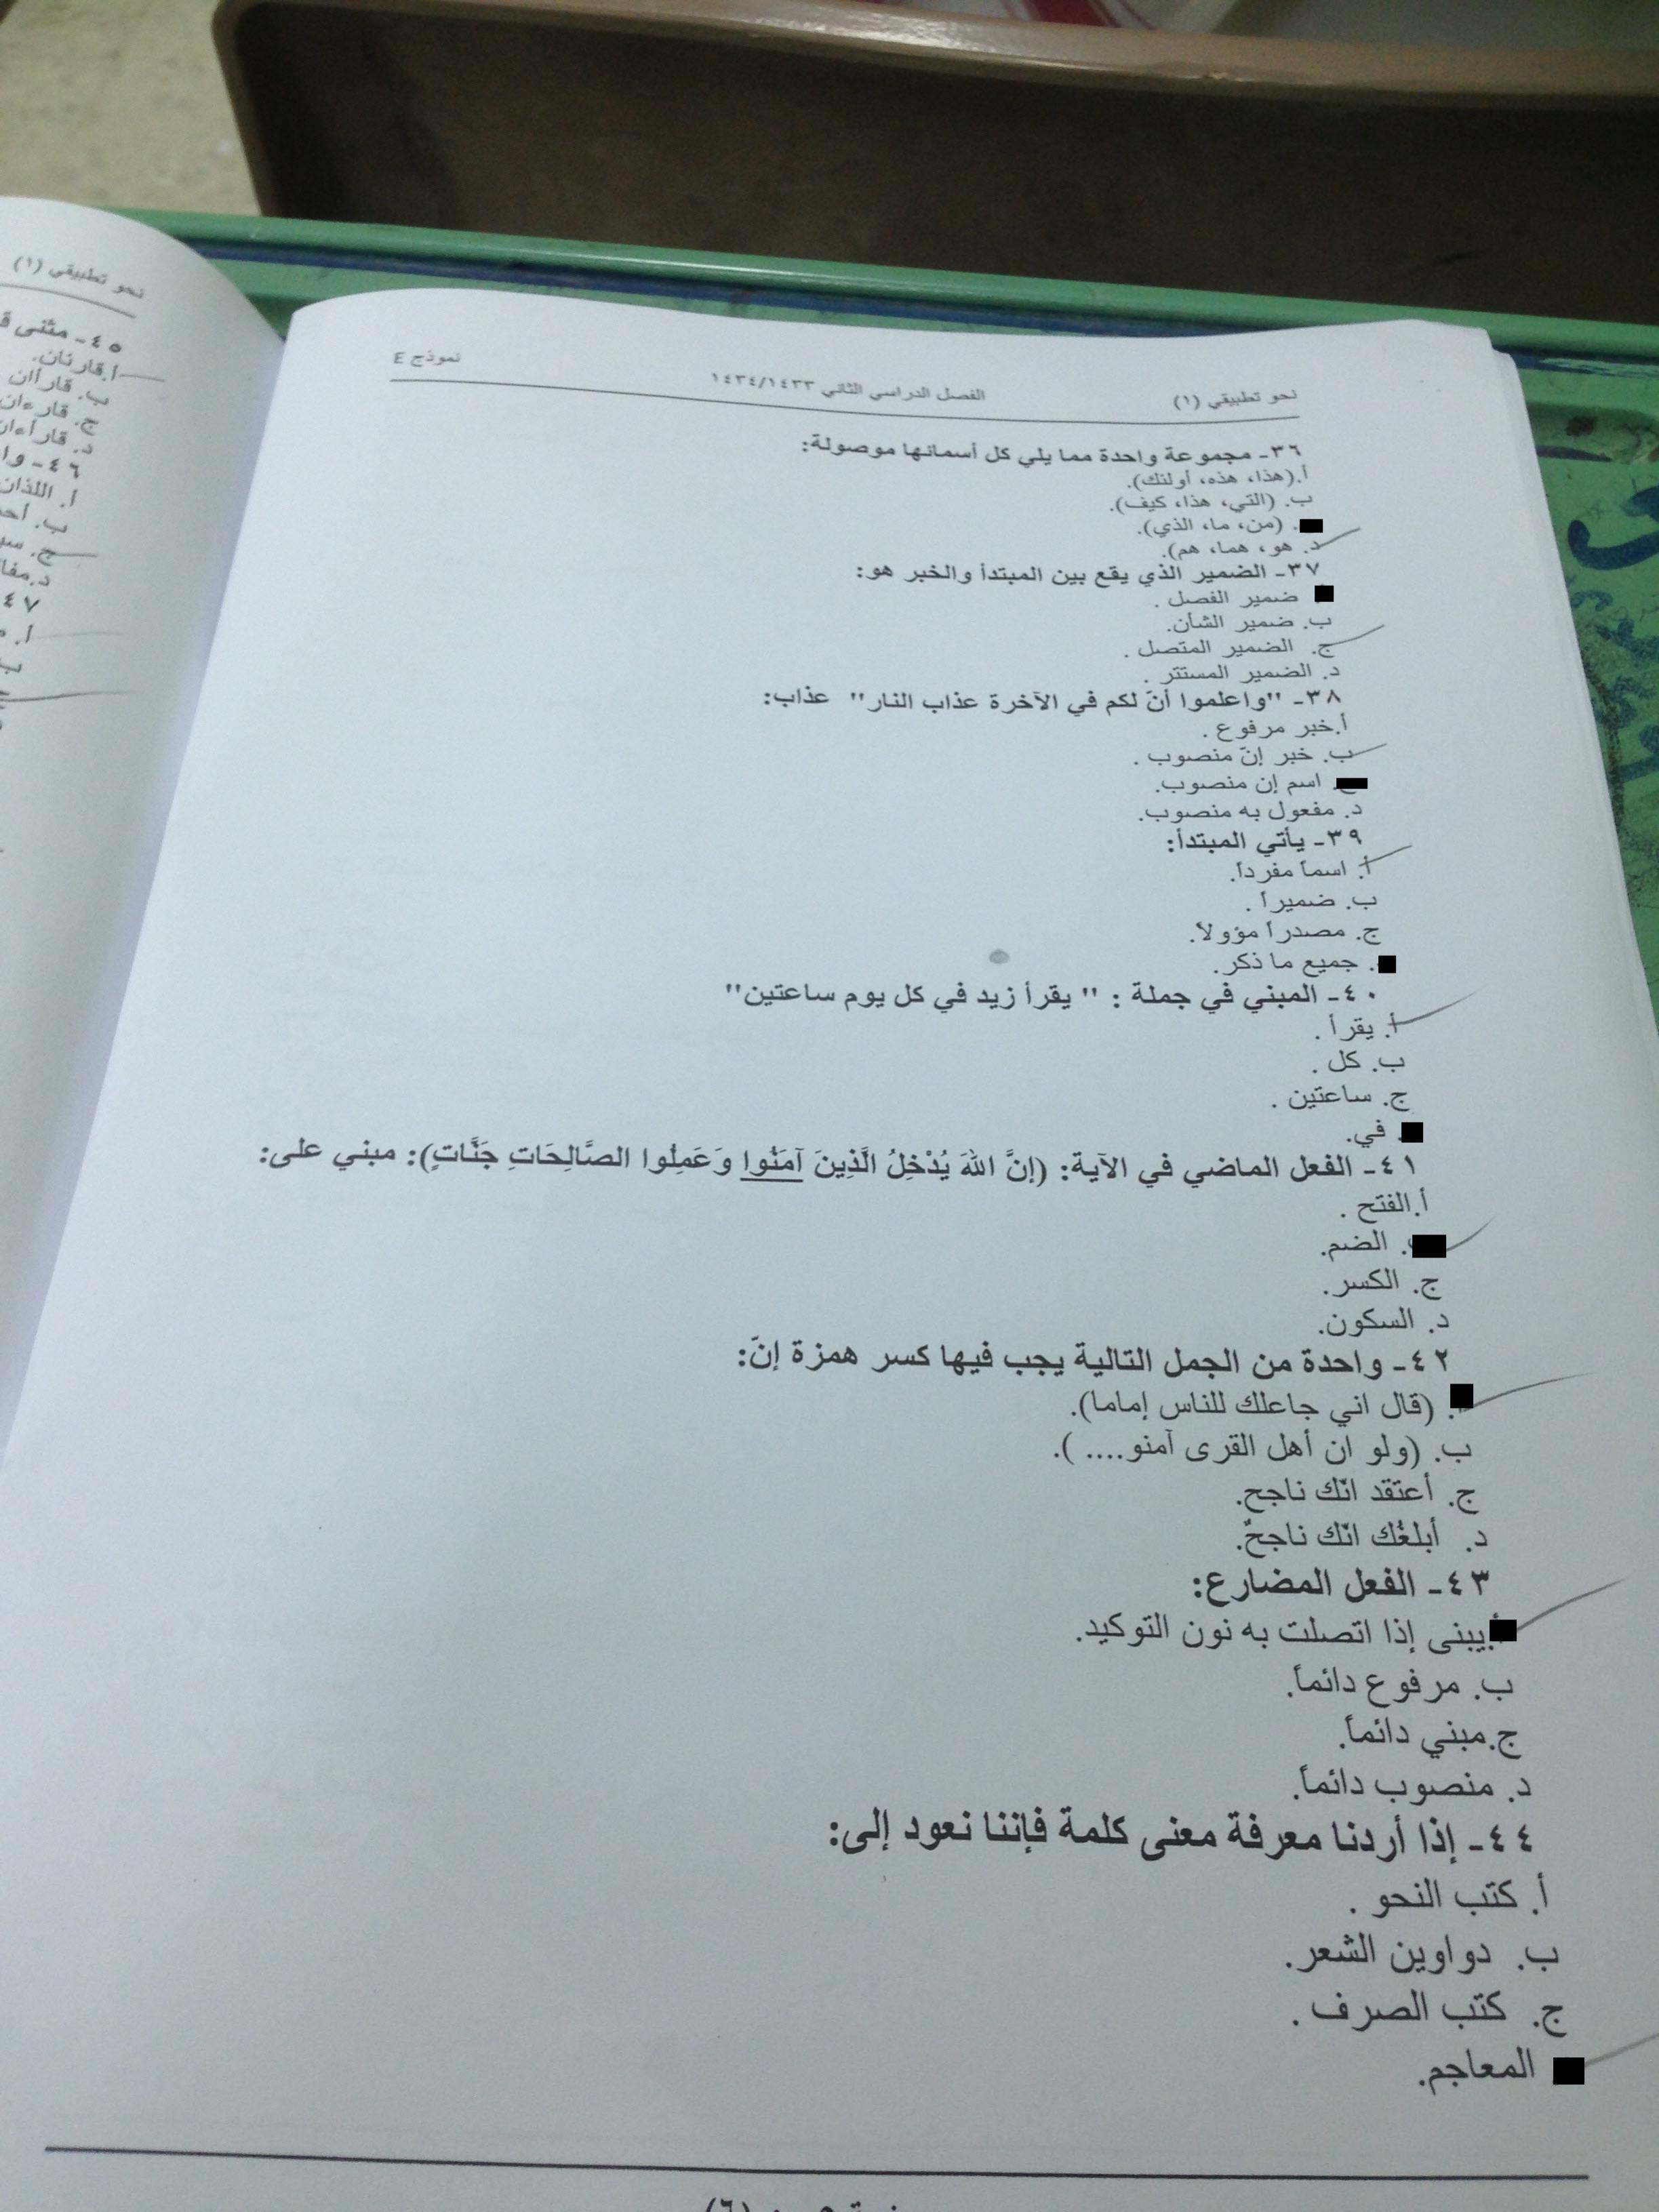 نحو تطبيقي (١) الفصل الدراسي الثاني ١٤٣٤/١٤٣٣ نموذج E
٣٦- مجموعة واحدة مما يلي كل أسمائها موصولة:
أ.(هذا، هذه، أولئك).
ب. (التي، هذا، كيف).
. (من، ما، الذي).
د. هو، هما، هم).
٣٧- الضمير الذي يقع بين المبتدأ والخبر هو:
ضمير الفصل .
ب. ضمير الشأن.
ج. الضمير المتصل .
د. الضمير المستتر .
٣٨- "واعلموا أنّ لكم في الآخرة عذاب النار" عذاب:
أ.خبر مرفوع .
ب. خبر إنّ منصوب .
اسم إن منصوب.
د. مفعول به منصوب.
٣٩- يأتي المبتدأ:
أ. اسماً مفرداً.
ب. ضميراً .
ج. مصدراً مؤولاً.
. جميع ما ذكر.
٤٠- المبني في جملة : " يقرأ زيد في كل يوم ساعتين"
أ. يقرأ .
ب. كل .
ج. ساعتين .
. في.
٤١- الفعل الماضي في الآية: (إنَّ اللهَ يُدْخِلُ الَّذِينَ آمَنُوا وَعَمِلُوا الصَّالِحَاتِ جَنَّاتٍ): مبني على:
أ.الفتح .
. الضم.
ج. الكسر.
د. السكون.
٤٢- واحدة من الجمل التالية يجب فيها كسر همزة إنّ:
. (قال اني جاعلك للناس إماما).
ب. (ولو ان أهل القرى آمنو.... ).
ج. أعتقد انّك ناجح.
د. أبلغُك انّك ناجحٌ.
٤٣- الفعل المضارع:
أ.يبنى إذا اتصلت به نون التوكيد.
ب. مرفوع دائماً.
ج.مبني دائماً.
د. منصوب دائماً.
٤٤- إذا أردنا معرفة معنى كلمة فإننا نعود إلى:
أ. كتب النحو .
ب. دواوين الشعر.
ج. كتب الصرف .
المعاجم.
نحو تطبيقي (١)
٤٥- مثنى
أ.قارئان.
ب. قارأان
ج. قارءان
د. قارأءان
٤٦- وا
أ. اللذان
ب. أحم
ج. سي
د.مفا
٤٧
أ.
ب